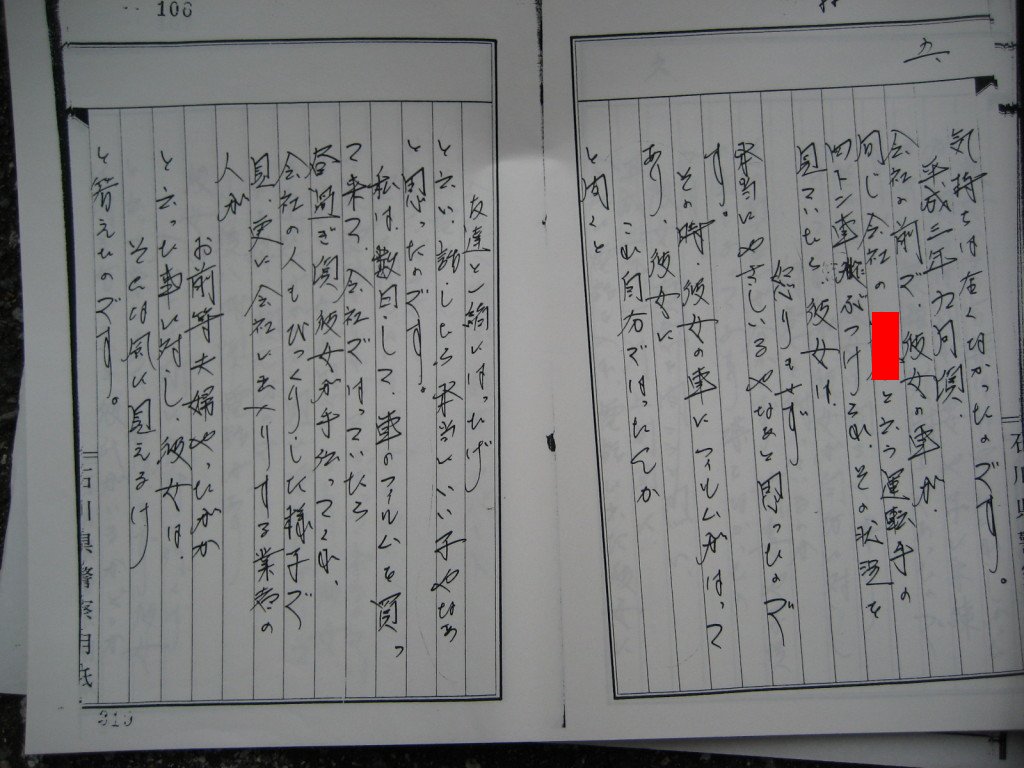 五、
気持ちは全くなかったのです。
平成三年九月頃、
会社の前で、彼女の車が、
同じ会社の
と云う運転手の
四トン車がぶつけられ、その状況を
見ていると、彼女は、
怒りもせず
本当にやさしい子やなあと思ったので
す。
その時、彼女の車にフィルムがはって
あり、彼女に
これ自分ではったんか
と聞くと
友達と一緒にはったげ
と云い、話しから本当にいい子やなあ
と思ったのです。
私は、数日して、車のフィルムを買っ
て来て、会社ではっていたら
昼間すぎ頃、彼女が手伝ってくれ、
会社の人もびっくりした様子で
見、更に会社に出入りする業者の
人が
お前等夫婦やったがか
と云った事に対し、彼女は、
そんな風に見えるけ
と答えたのです。
石川県警察用紙
石川県警
106
313